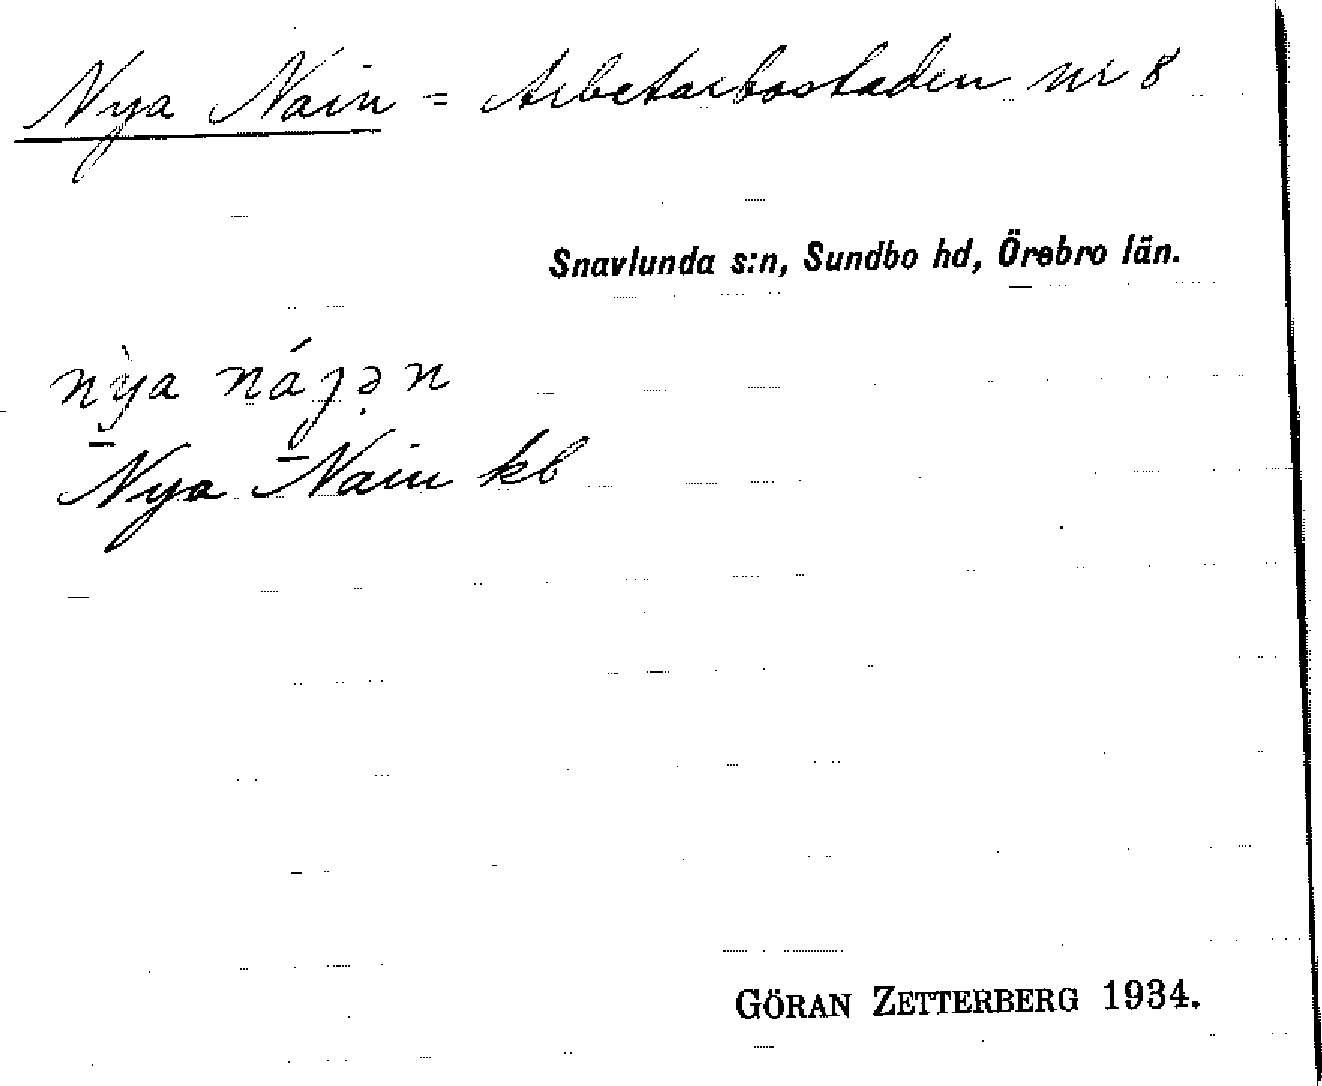 Nya Nain = Arbetarbostaden nr 8
Snavlunda s:n, Sundbo hd, Örebro län.
nỳa náȷə̣n
Nya Nain kb
GÖRAN ZETTERBERG 1934.